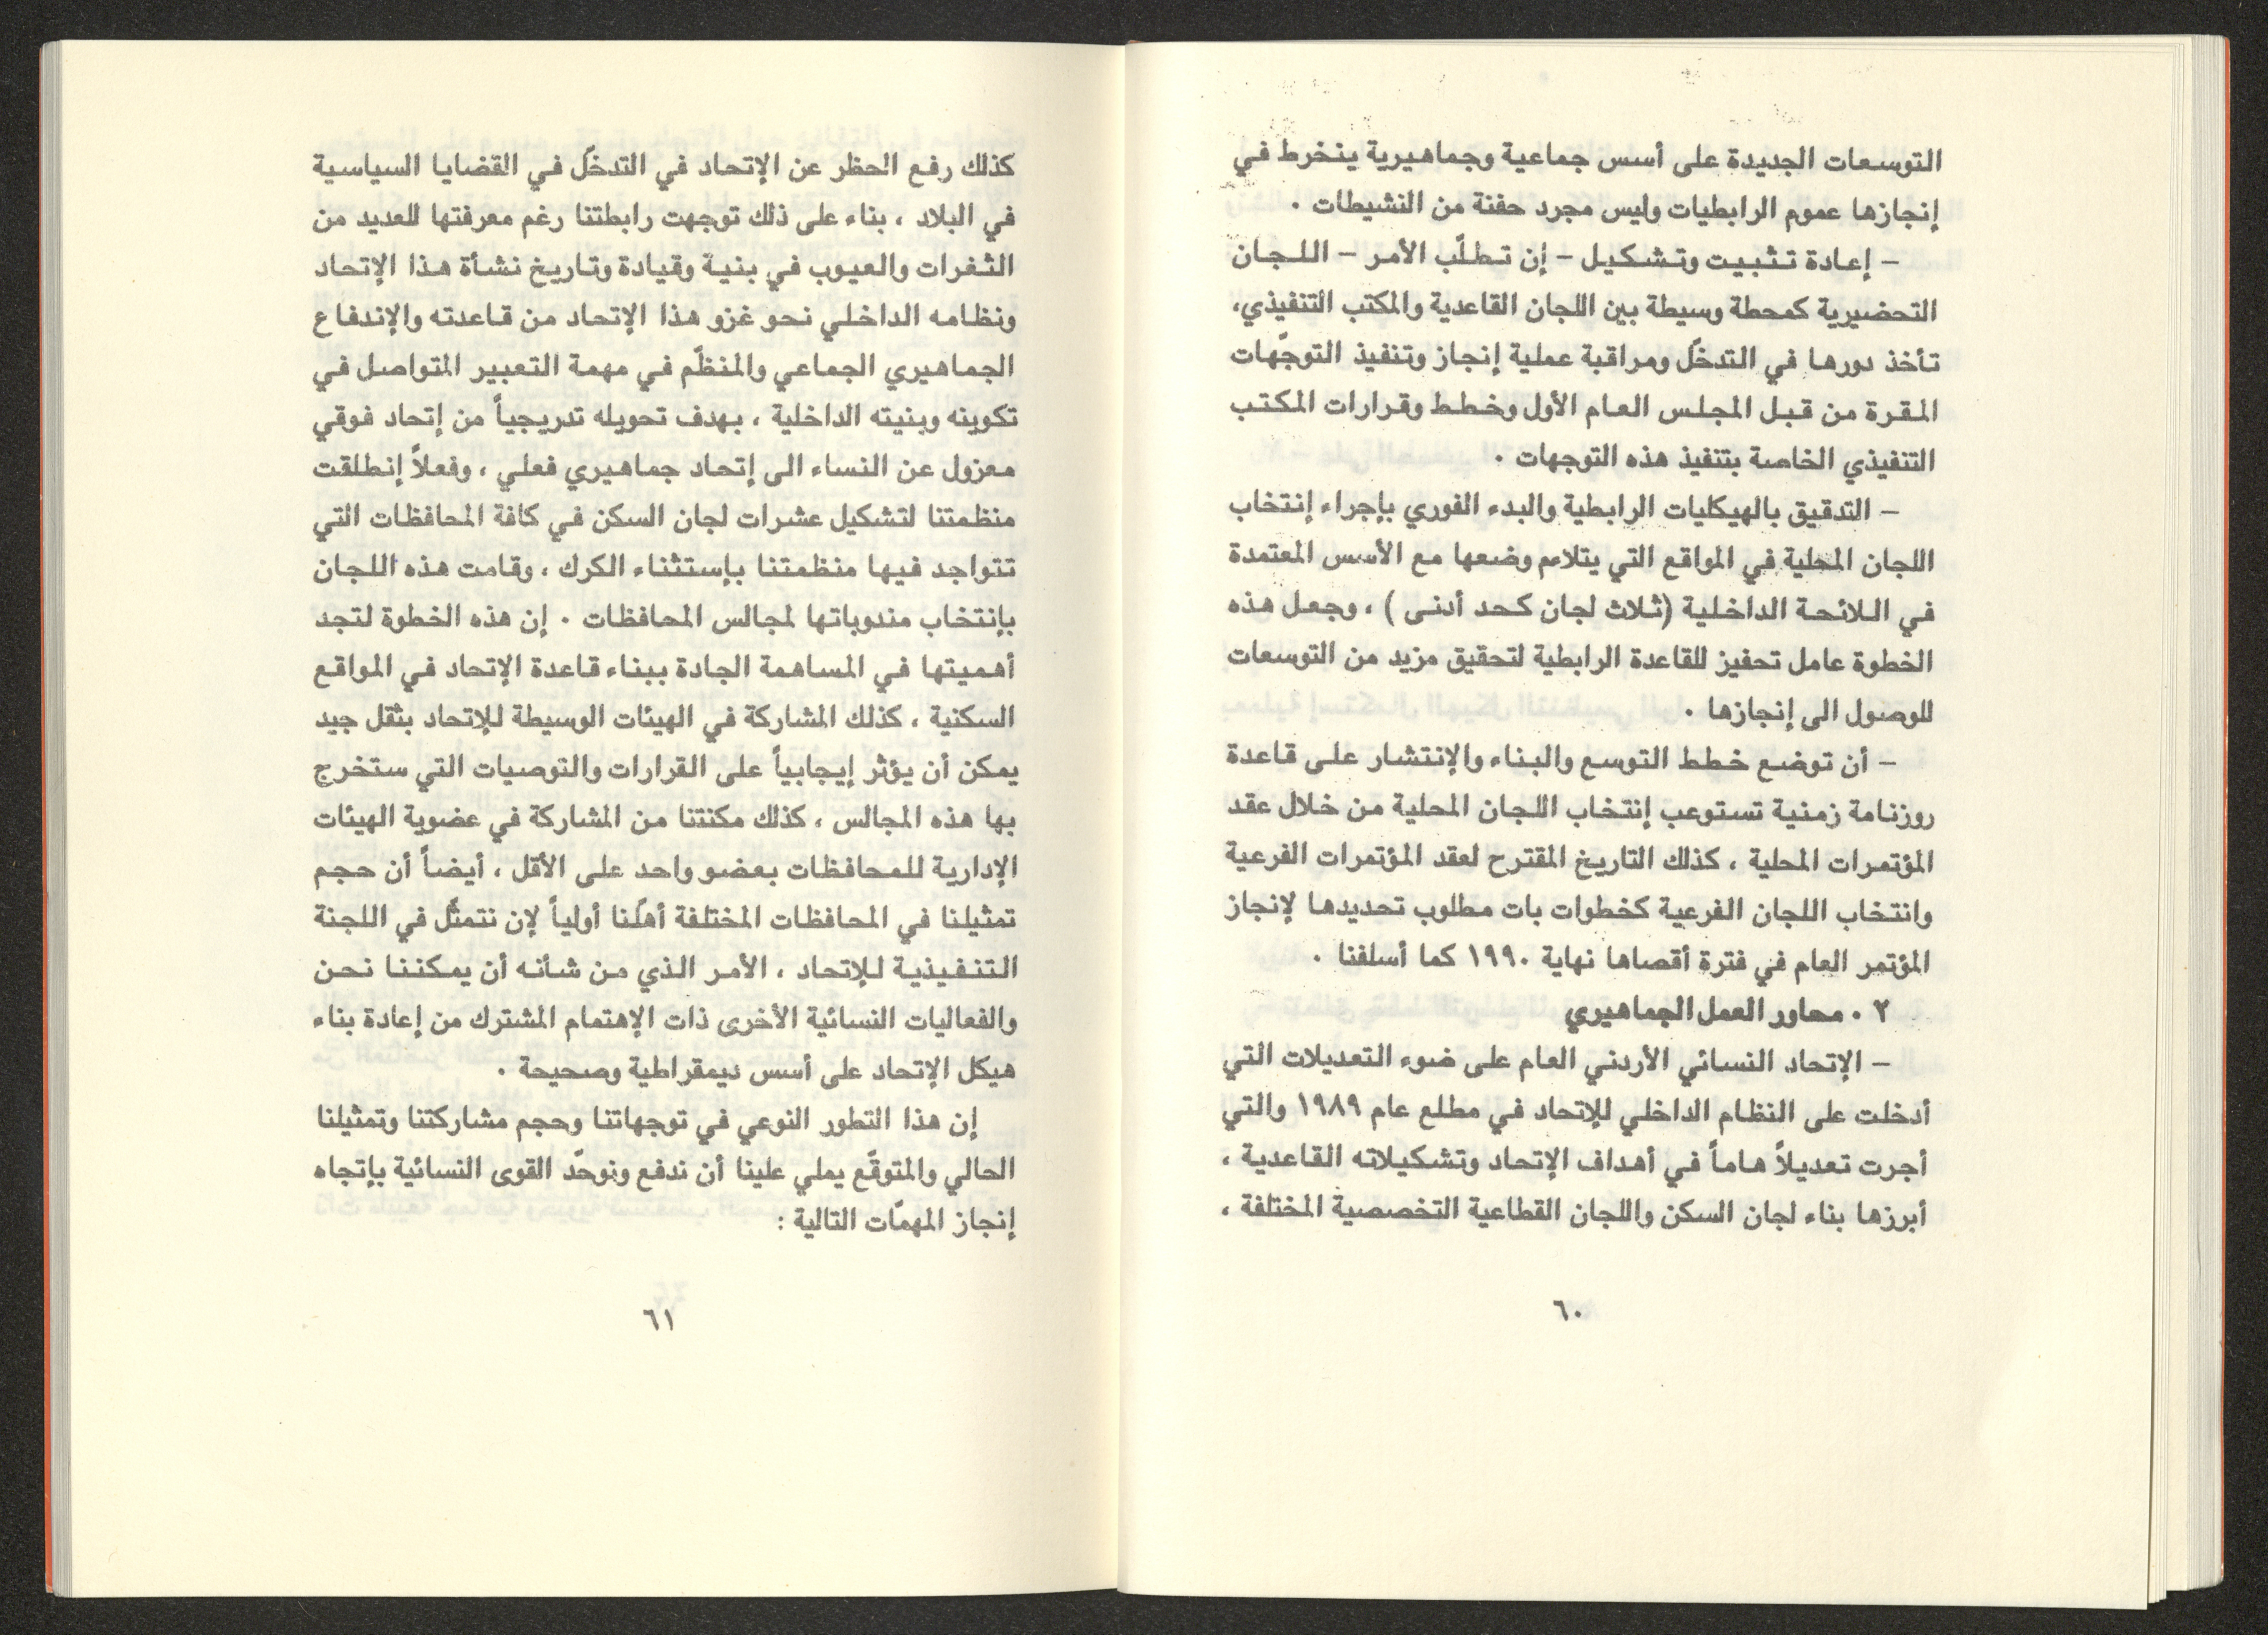 التوسعات الجديدة على أسس جماعية وجماهيرية ينخرط في
إنجازها عموم الرابطيات وليس مجرد حفنة من النشيطات .
– إعادة تثبيت وتشكيل – إن تطلّب الأمر – اللجان
التحضيرية كمحطة وسيطة بين اللجان القاعدية والمكتب التنفيذي،
تأخذ دورها في التدخّل ومراقبة عملية إنجاز وتنفيذ التوجّهات
المقرة من قبل المجلس العام الأول وخطط وقرارات المكتب
التنفيذي الخاصة بتنفيذ هذه التوجهات .
– التدقيق بالهيكليات الرابطية والبدء الفوري بإجراء إنتخاب
اللجان المحلية في المواقع التي يتلاءم وضعها مع الأسس المعتمدة
في اللائحة الداخلية (ثلاث لجان كحد أدنى ) ، وجعل هذه
الخطوة عامل تحفيز للقاعدة الرابطية لتحقيق مزيد من التوسعات
للوصول الى إنجازها .
– أن توضع خطط التوسع والبناء والإنتشار على قاعدة
روزنامة زمنية تستوعب إنتخاب اللجان المحلية من خلال عقد
المؤتمرات المحلية ، كذلك التاريخ المقترح لعقد المؤتمرات الفرعية
وانتخاب اللجان الفرعية كخطوات بات مطلوب تحديدها لإنجاز
المؤتمر العام في فترة أقصاها نهاية ١٩٩٠ كما أسلفنا .
٢ . محاور العمل الجماهيري
– الإتحاد النسائي الأردني العام على ضوء التعديلات التي
أدخلت على النظام الداخلي للإتحاد في مطلع عام ١٩٨٩ والتي
أجرت تعديلاً هاماً في أهداف الإتحاد وتشكيلاته القاعدية ،
أبرزها بناء لجان السكن واللجان القطاعية التخصصية المختلفة ،
٦٠
كذلك رفع الحظر عن الإتحاد في التدخّل في القضايا السياسية
في البلاد ، بناء على ذلك توجهت رابطتنا رغم معرفتها للعديد من
الثغرات والعيوب في بنية وقيادة وتاريخ نشأة هذا الإتحاد
ونظامه الداخلي نحو غزو هذا الإتحاد من قاعدته والإندفاع
الجماهيري الجماعي والمنظّم في مهمة التعبير المتواصل في
تكوينه وبنيته الداخلية ، بهدف تحويله تدريجياً من إتحاد فوقي
معزول عن النساء الى إتحاد جماهيري فعلي ، وفعلاً إنطلقت
منظمتنا لتشكيل عشرات لجان السكن في كافة المحافظات التي
تتواجد فيها منظمتنا بإستثناء الكرك ، وقامت هذه اللجان
بإنتخاب مندوباتها لمجالس المحافظات . إن هذه الخطوة لتجد
أهميتها في المساهمة الجادة ببناء قاعدة الإتحاد في المواقع
السكنية ، كذلك المشاركة في الهيئات الوسيطة للإتحاد بثقل جيد
يمكن أن يؤثر إيجابياً على القرارات والتوصيات التي ستخرج
بها هذه المجالس ، كذلك مكنتنا من المشاركة في عضوية الهيئات
الإدارية للمحافظات بعضو واحد على الأقل ، أيضاً أن حجم
تمثيلنا في المحافظات المختلفة أهلّنا أولياً لإن نتمثّل في اللجنة
التنفيذية للإتحاد ، الأمر الذي من شأنه أن يمكننا نحن
والفعاليات النسائية الأخرى ذات الإهتمام المشترك من إعادة بناء
هيكل الإتحاد على أسس ديمقراطية وصحيحة .
إن هذا التطور النوعي في توجهاتنا وحجم مشاركتنا وتمثيلنا
الحالي والمتوقّع يملي علينا أن ندفع ونوحّد القوى النسائية بإتجاه
إنجاز المهمّات التالية :
٦١